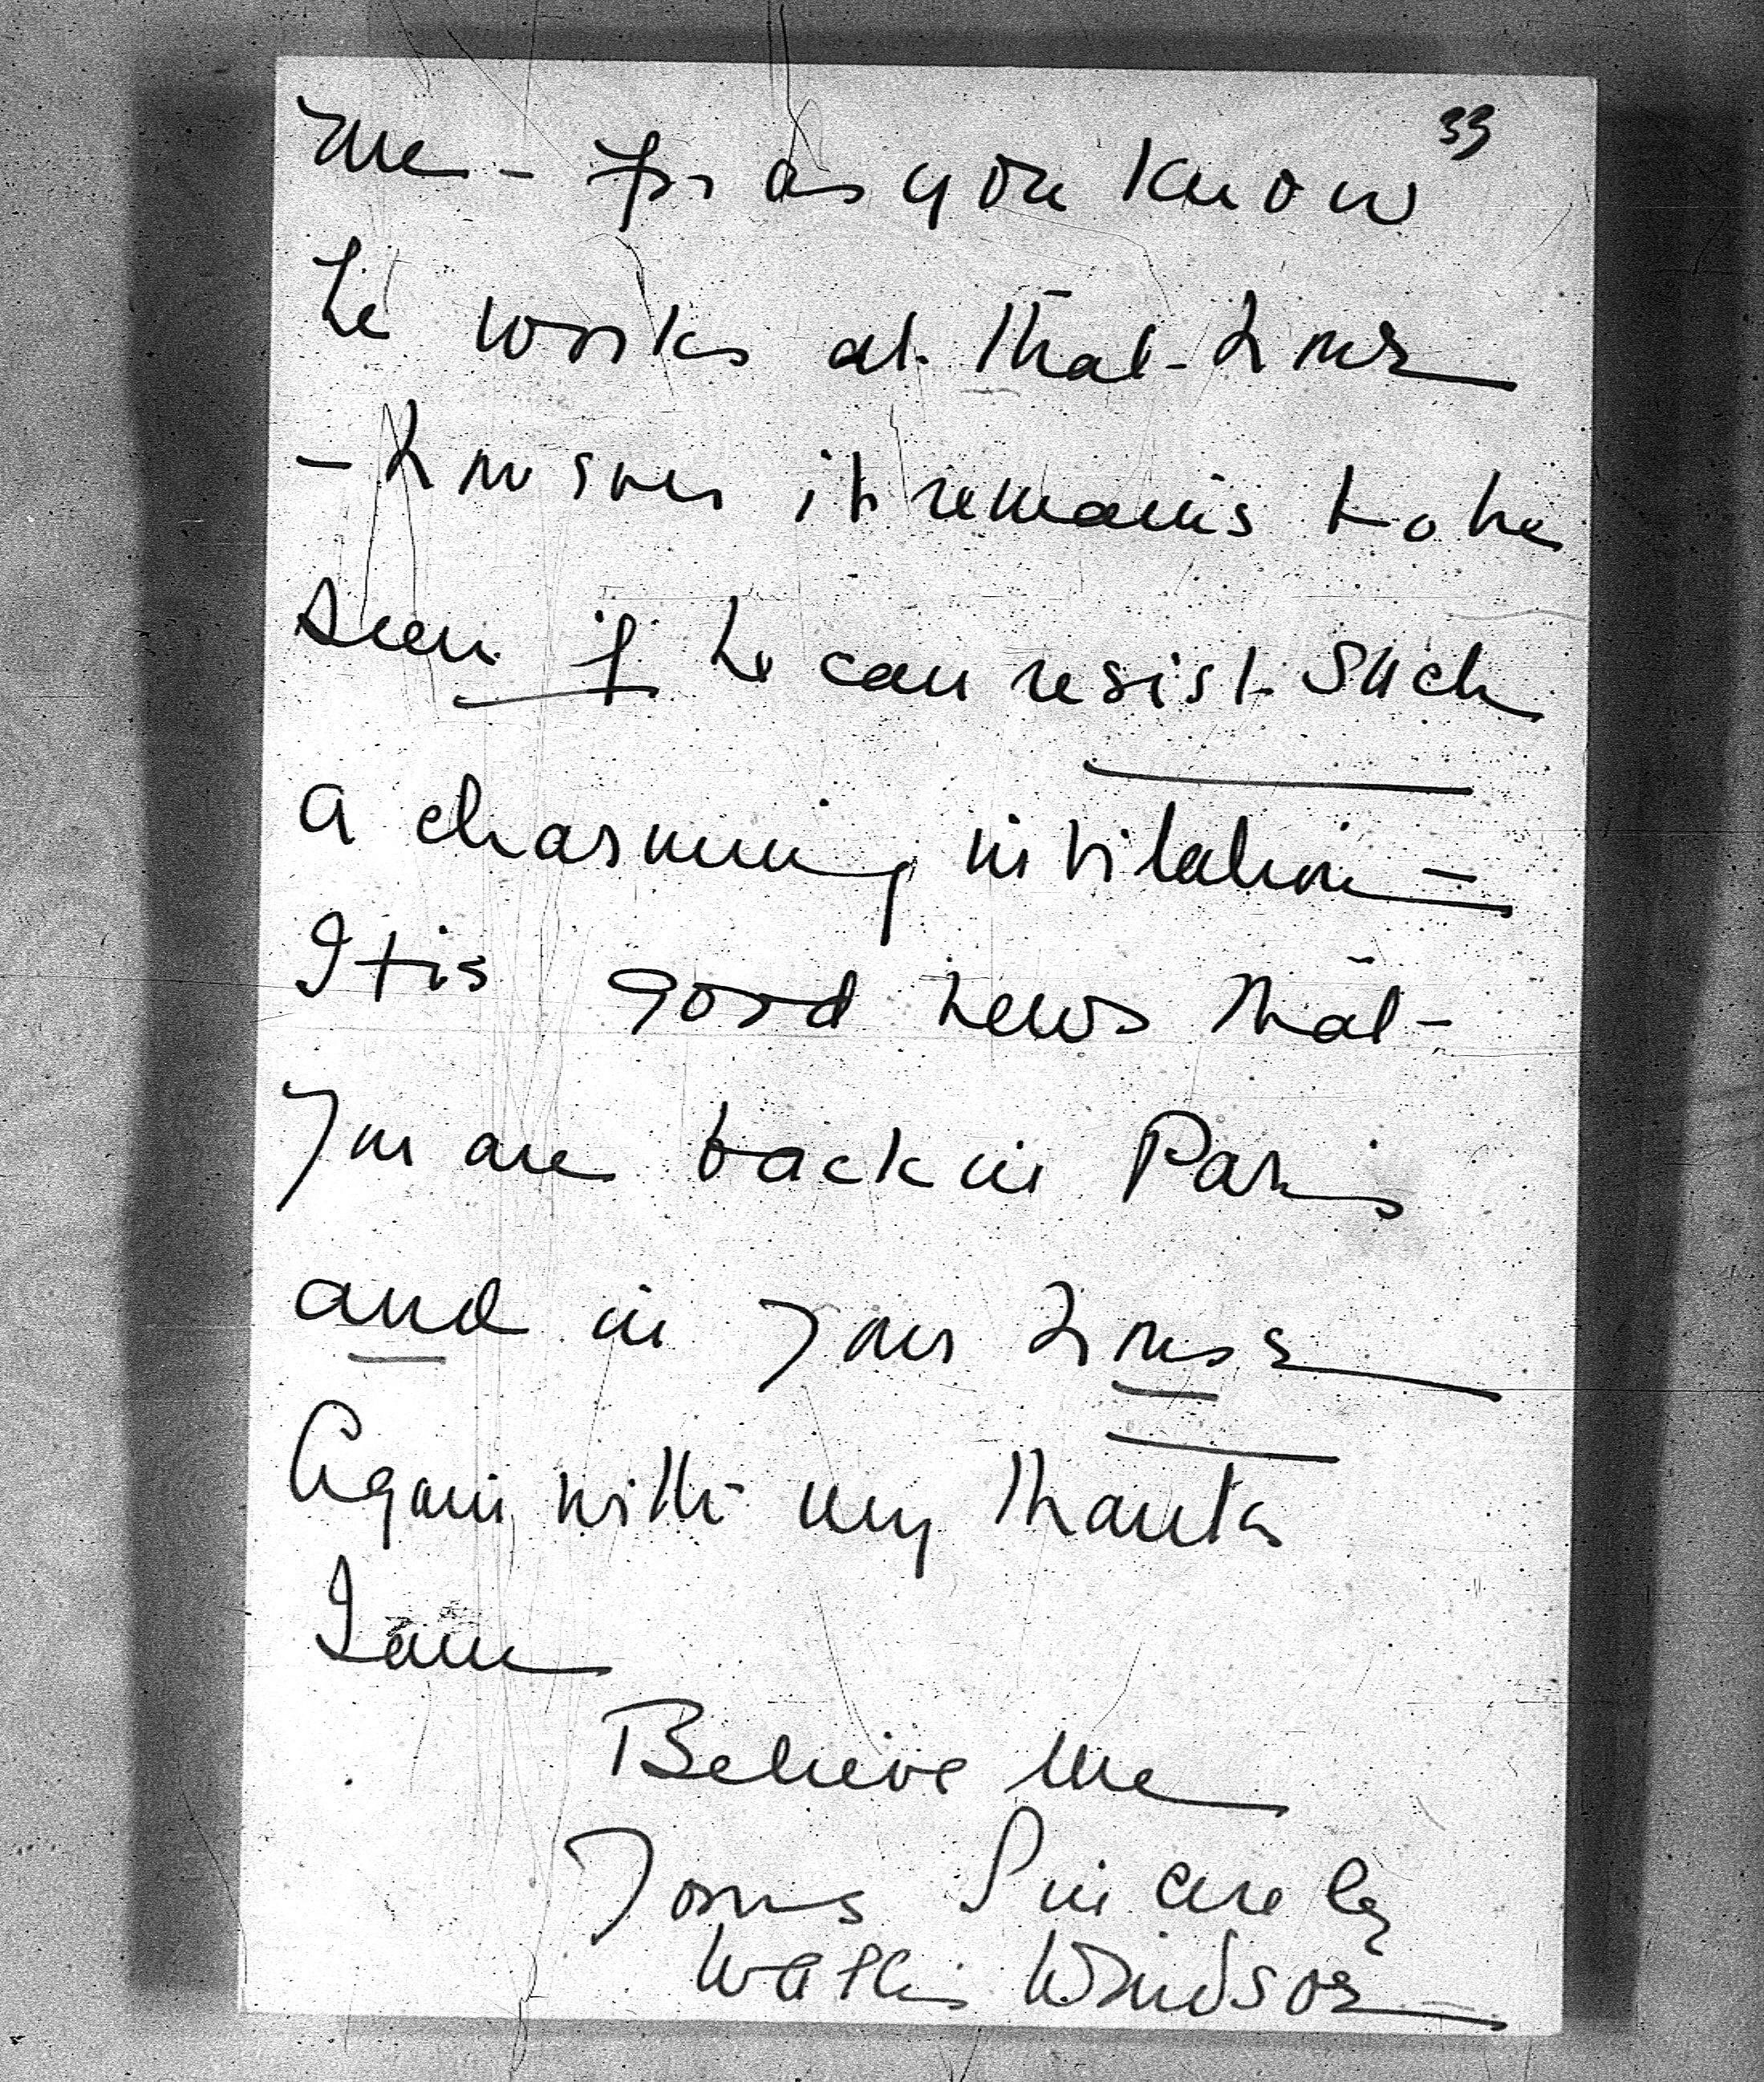 33
me - for as you know
he works at that hour
- however it remains to be
seen if he can resist such
a charming invitation -
It is good news that -
you are back in Paris
and in your house
Again with my thanks
I am
Believe me
Yours Sincerely
Wallis Windsor